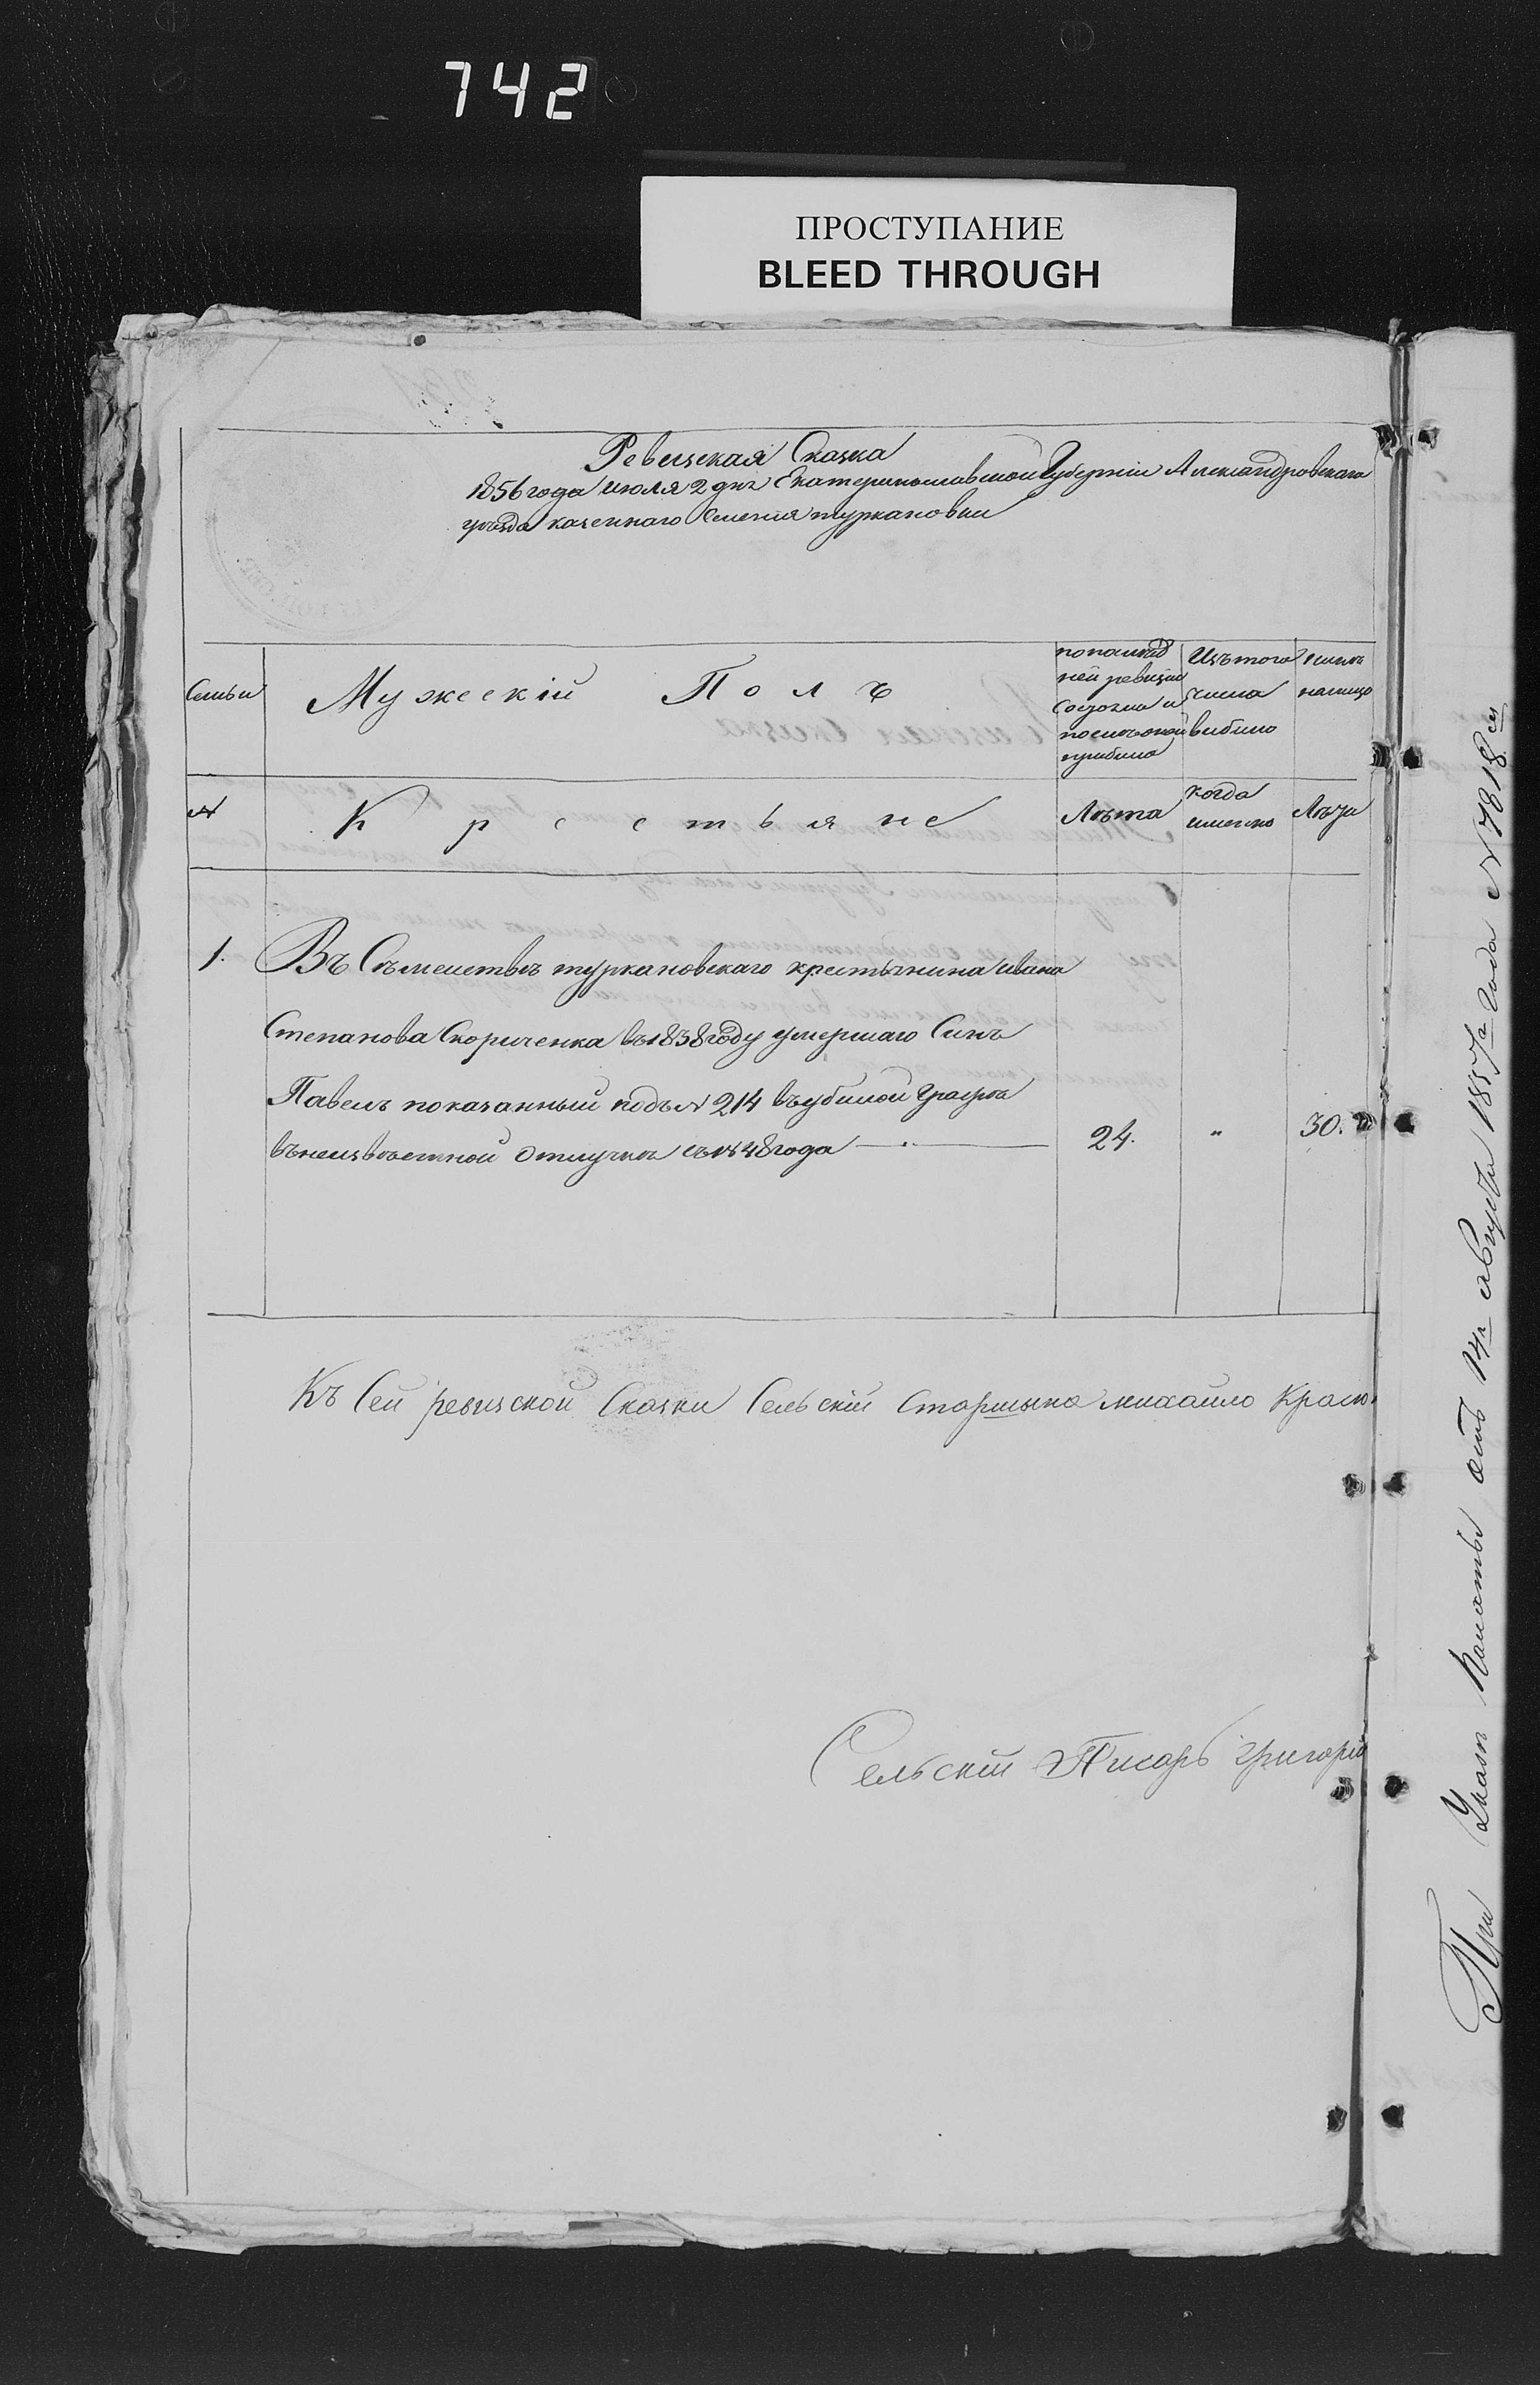 742
ПРОСТУПАНИЕ
BLEED THROUGH
Ревизская Сказка
1856 года июля 2 дня Екатеринославской Губерніи Александровскаго
уѣзда казеннаго Селенія туркановки
Семьи
Мужескій Полъ
по послѣд
ней ревизіи
состояло и
после оной
прибыло
Изъ того
числа
выбыло
нынѣ
налицо
№
Крестьяне
Лѣта
когда
именно
Лѣта
1. Въ Съмействѣ туркановскаго крестьянина ивана
Степанова Скориченка въ 1838 году умершаго Синъ
Павелъ показанный подъ № 214 въ убилой Графѣ
въ неизвѣстной Отлучкѣ съ 1848 года — 24. " 30.
Къ Сей ревизской Сказки Сельскій Старшына михайло Крас
Сельскій Писарь григорій
При Указѣ Палаты отъ 14го августа 1857го Года № 7818.